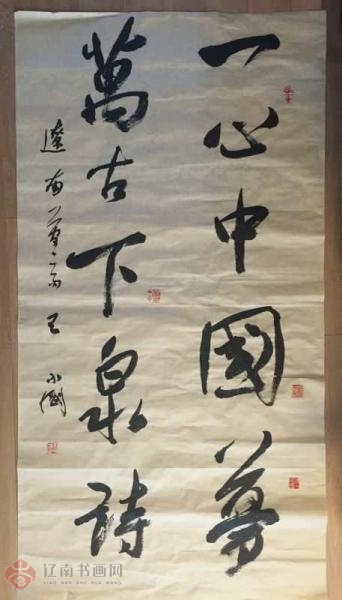 一心中國夢
萬古下泉詩
遼南
辽南书画网
LIAO NAN SHU HUA WANG